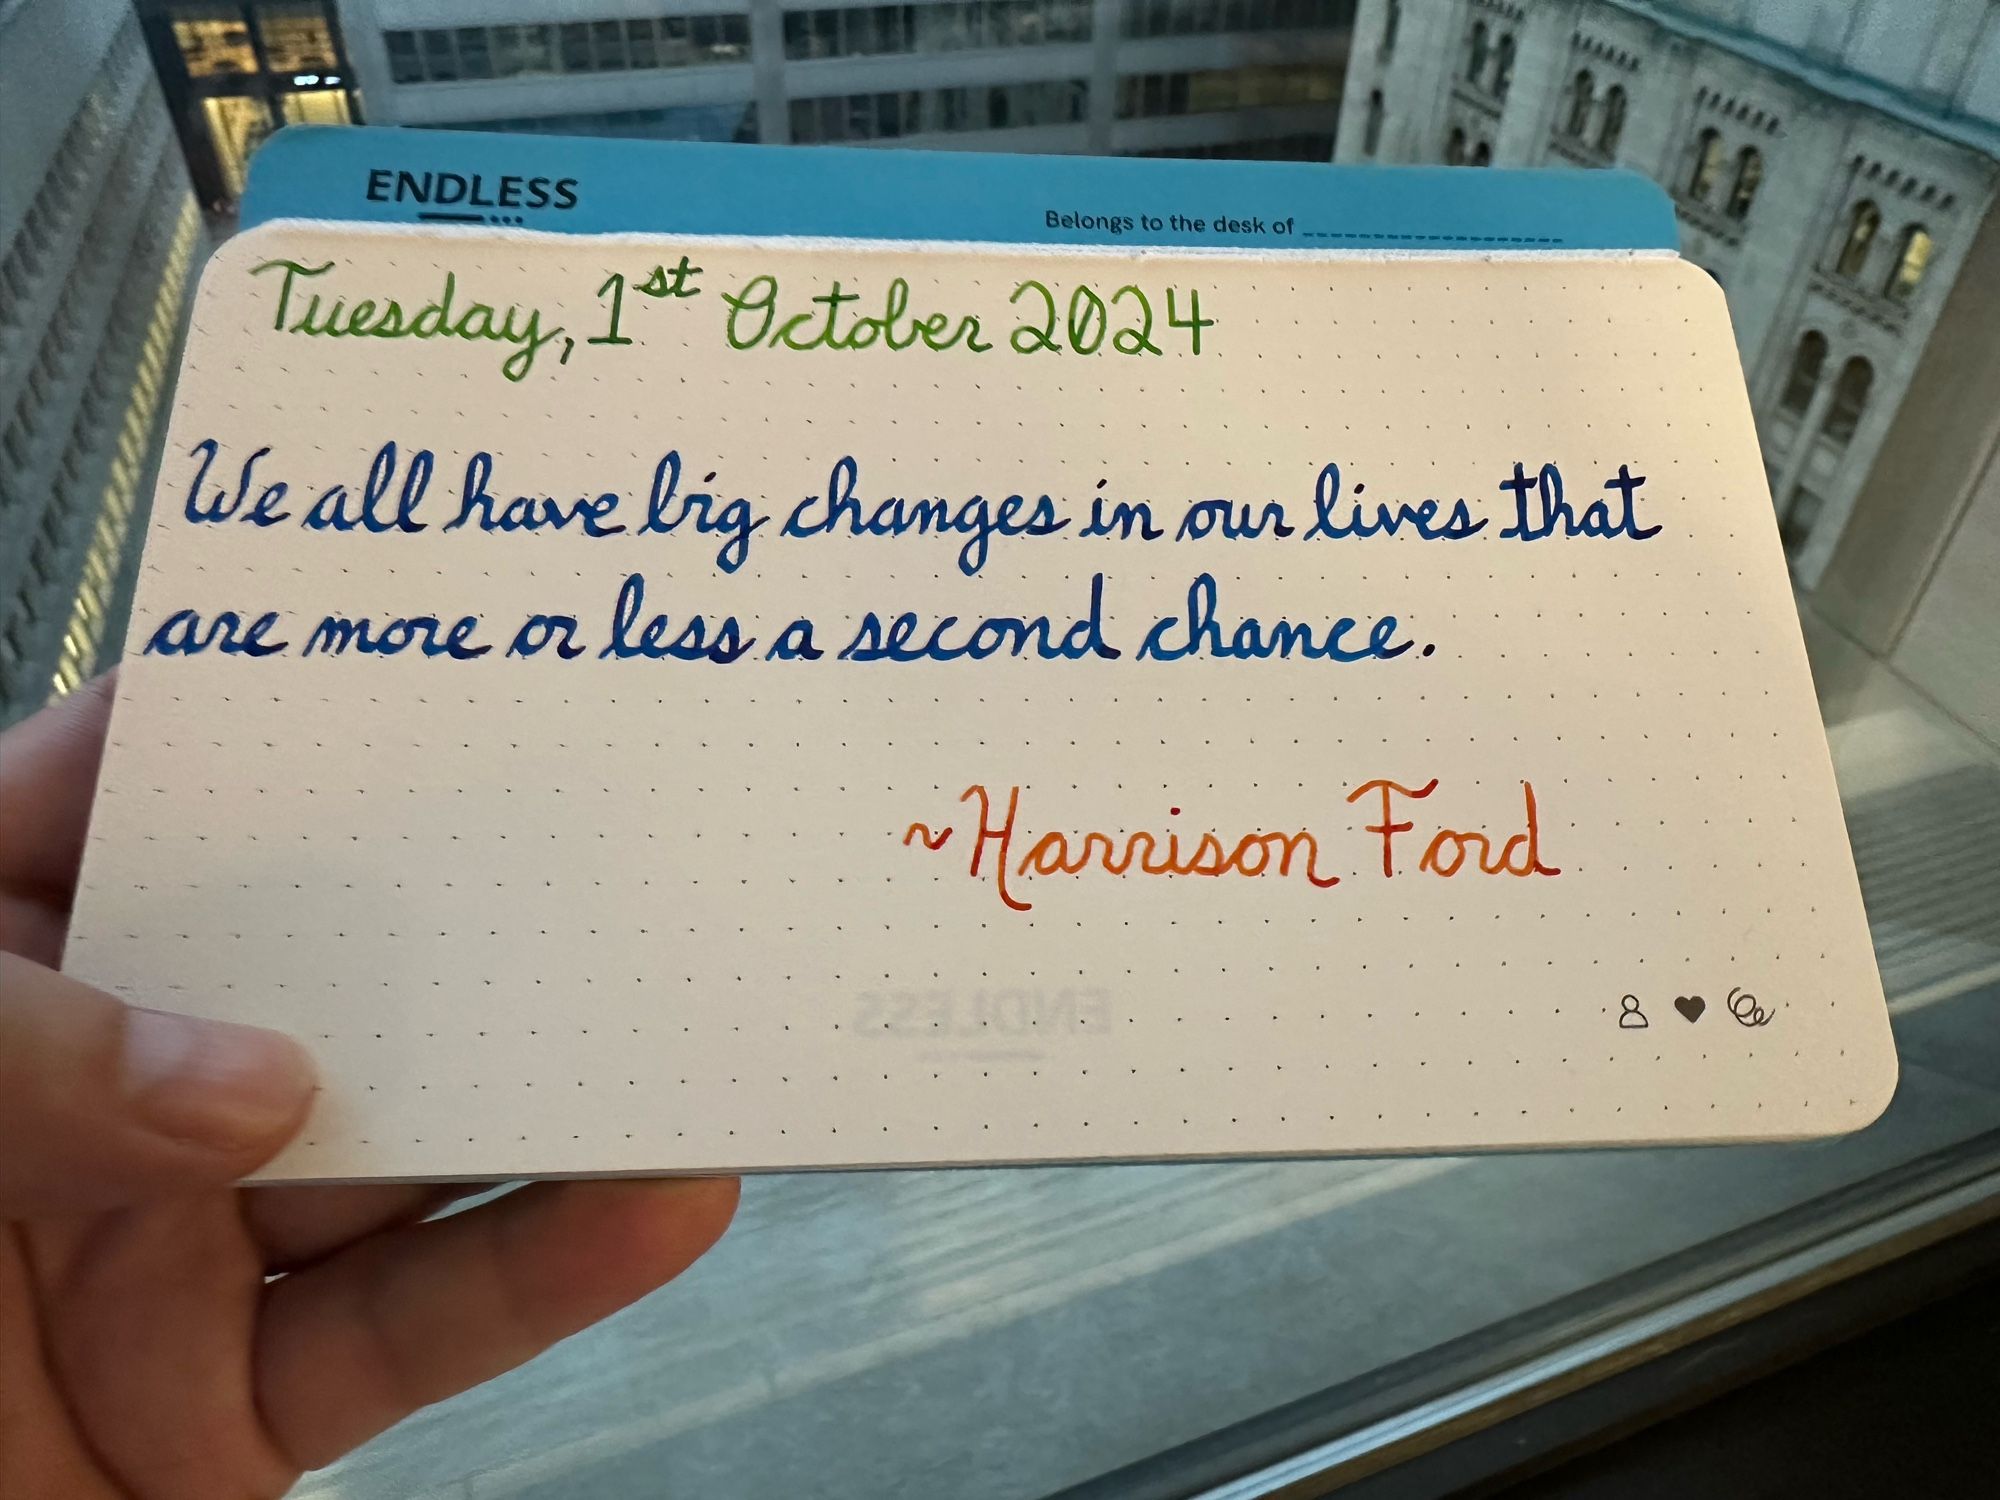 ENDLESS
Belongs to the desk of
Tuesday, 1st October 2024
We all have big changes in our lives that
are more or less a second chance.
~Harrison Ford
ENDLESS